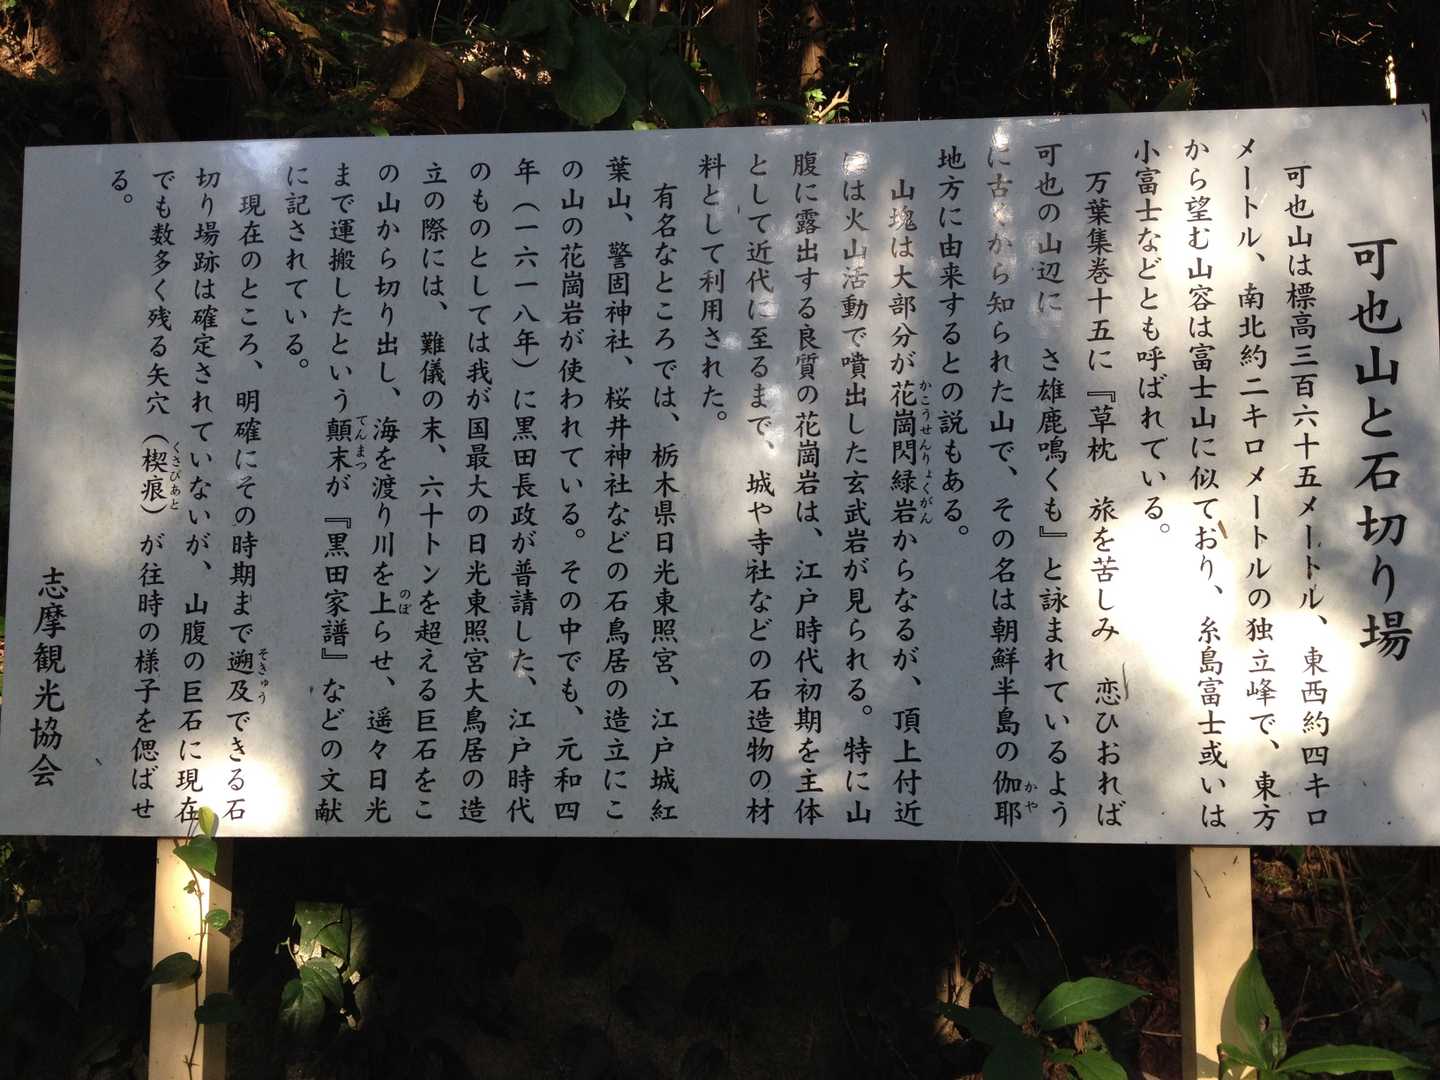 可也山と石切り場
可也山は標高三百六十五メートル、東西約四キロ
メートル、南北約二キロメートルの独立峰で、東方
から望む山容は富士山に似ており、糸島富士或いは
小富士などとも呼ばれている。
万葉集巻十五に『草枕　旅を苦しみ　恋ひおれば
可也の山辺に　さ雄鹿鳴くも』と詠まれているよう
に古くから知られた山で、その名は朝鮮半島の伽耶
かや
地方に由来するとの説もある。
山塊は大部分が花崗閃緑岩からなるが、頂上付近
かこうせんりょくがん
には火山活動で噴出した玄武岩が見られる。特に山
腹に露出する良質の花崗岩は、江戸時代初期を主体
として近代に至るまで、城や寺社などの石造物の材
料として利用された。
有名なところでは、栃木県日光東照宮、江戸城紅
葉山、警固神社、桜井神社などの石鳥居の造立にこ
の山の花崗岩が使われている。その中でも、元和四
年（一六一八年）に黒田長政が普請した、江戸時代
のものとしては我が国最大の日光東照宮大鳥居の造
立の際には、難儀の末、六十トンを超える巨石をこ
の山から切り出し、海を渡り川を上らせ、遥々日光
のぼ
まで運搬したという顛末が『黒田家譜』などの文献
てんまつ
に記されている。
現在のところ、明確にその時期まで遡及できる石
そきゅう
切り場跡は確定されていないが、山腹の巨石に現在
でも数多く残る矢穴（楔痕）が往時の様子を偲ばせ
くさびあと
る。
志摩観光協会